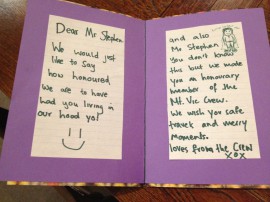 Dear Mr Stephen
We would just
like to say
how honoured
we are to have
had you living in
our hood yo!
and also
Mr Stephen
You don't know
this but we made
you an honourary
member of the
Mt. Vic Crew.
We wish you safe
travels and merry
moments.
loves from the CREW
xox